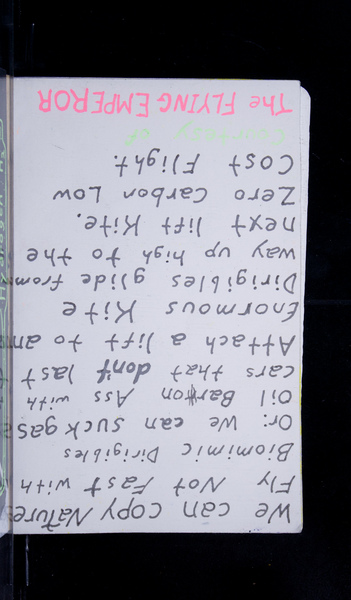 We can copy Nature
Fly Not Fast with
Biomimic Dirigibles
Or: We can suck gas
Oil Barron Ass with
cars that don't last
Attach a lift to an
Enormous Kite
Dirigibles glide from
way up high to the
next lift Kite.
Zero Carbon Low
Cost Flight.
Courtesy of
The FLYING EMPEROR